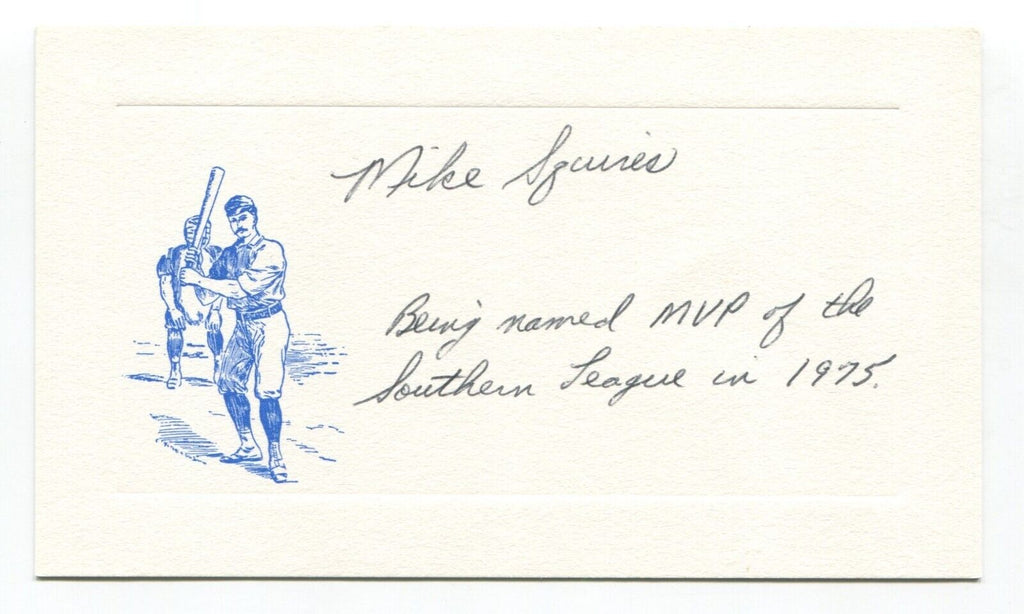 Mike Squires
Being named MVP of the
Southern League in 1975.